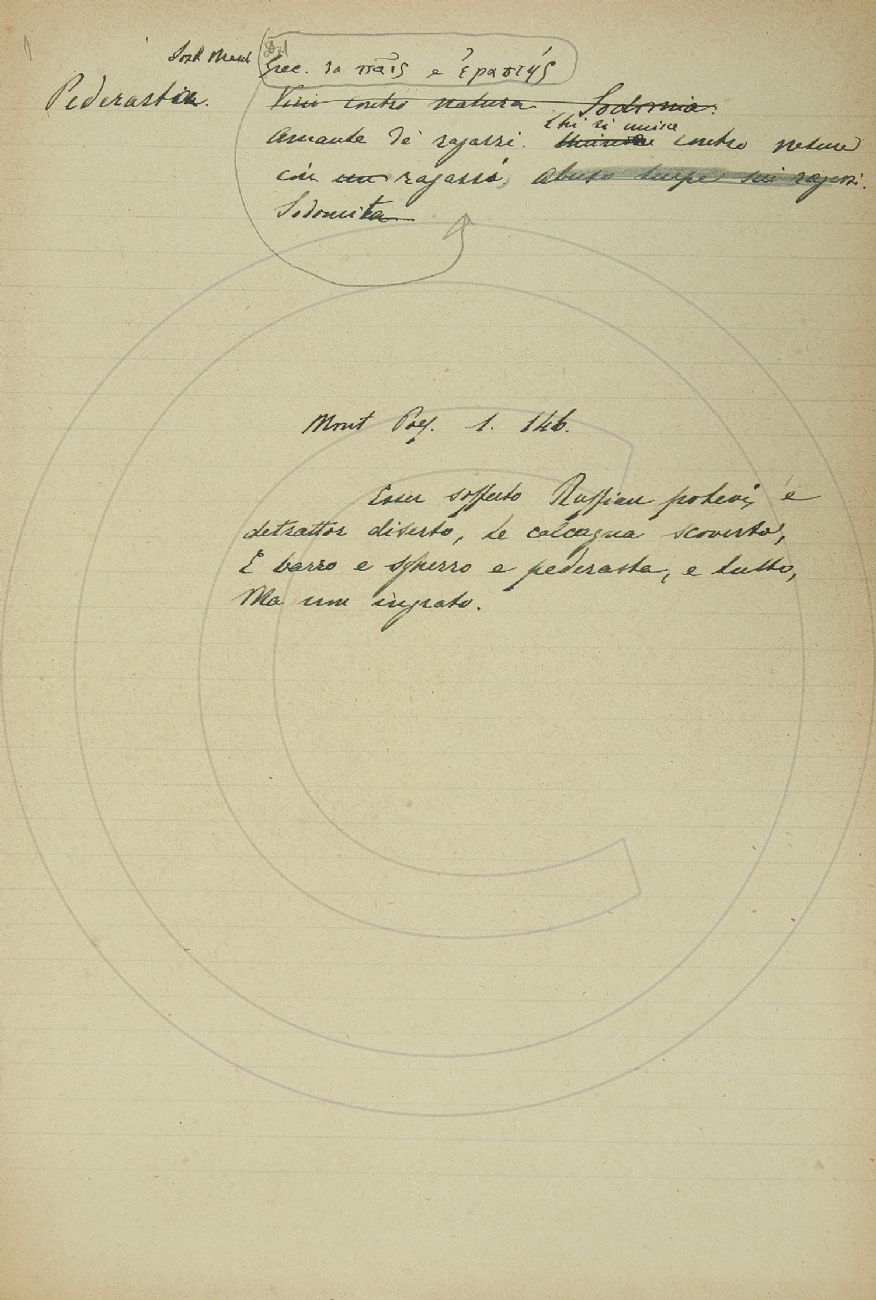 Sost Masc
Dal
Grec. da παῖς e ἐραστής
Pederasta.
Vizio contro natura Sodomia.
Chi si unisce
Amante de' ragazzi. contro natura
con un ragazzi, Abuso turpe sui ragazzi.
Sodomita
Mont Poes. 1. 146.
Esser sofferto Ruffian potevi, e
detrattor diserto, Le calcagna scoverto,
E barro e sgherro e pederasta, e tutto,
Ma non ingrato.